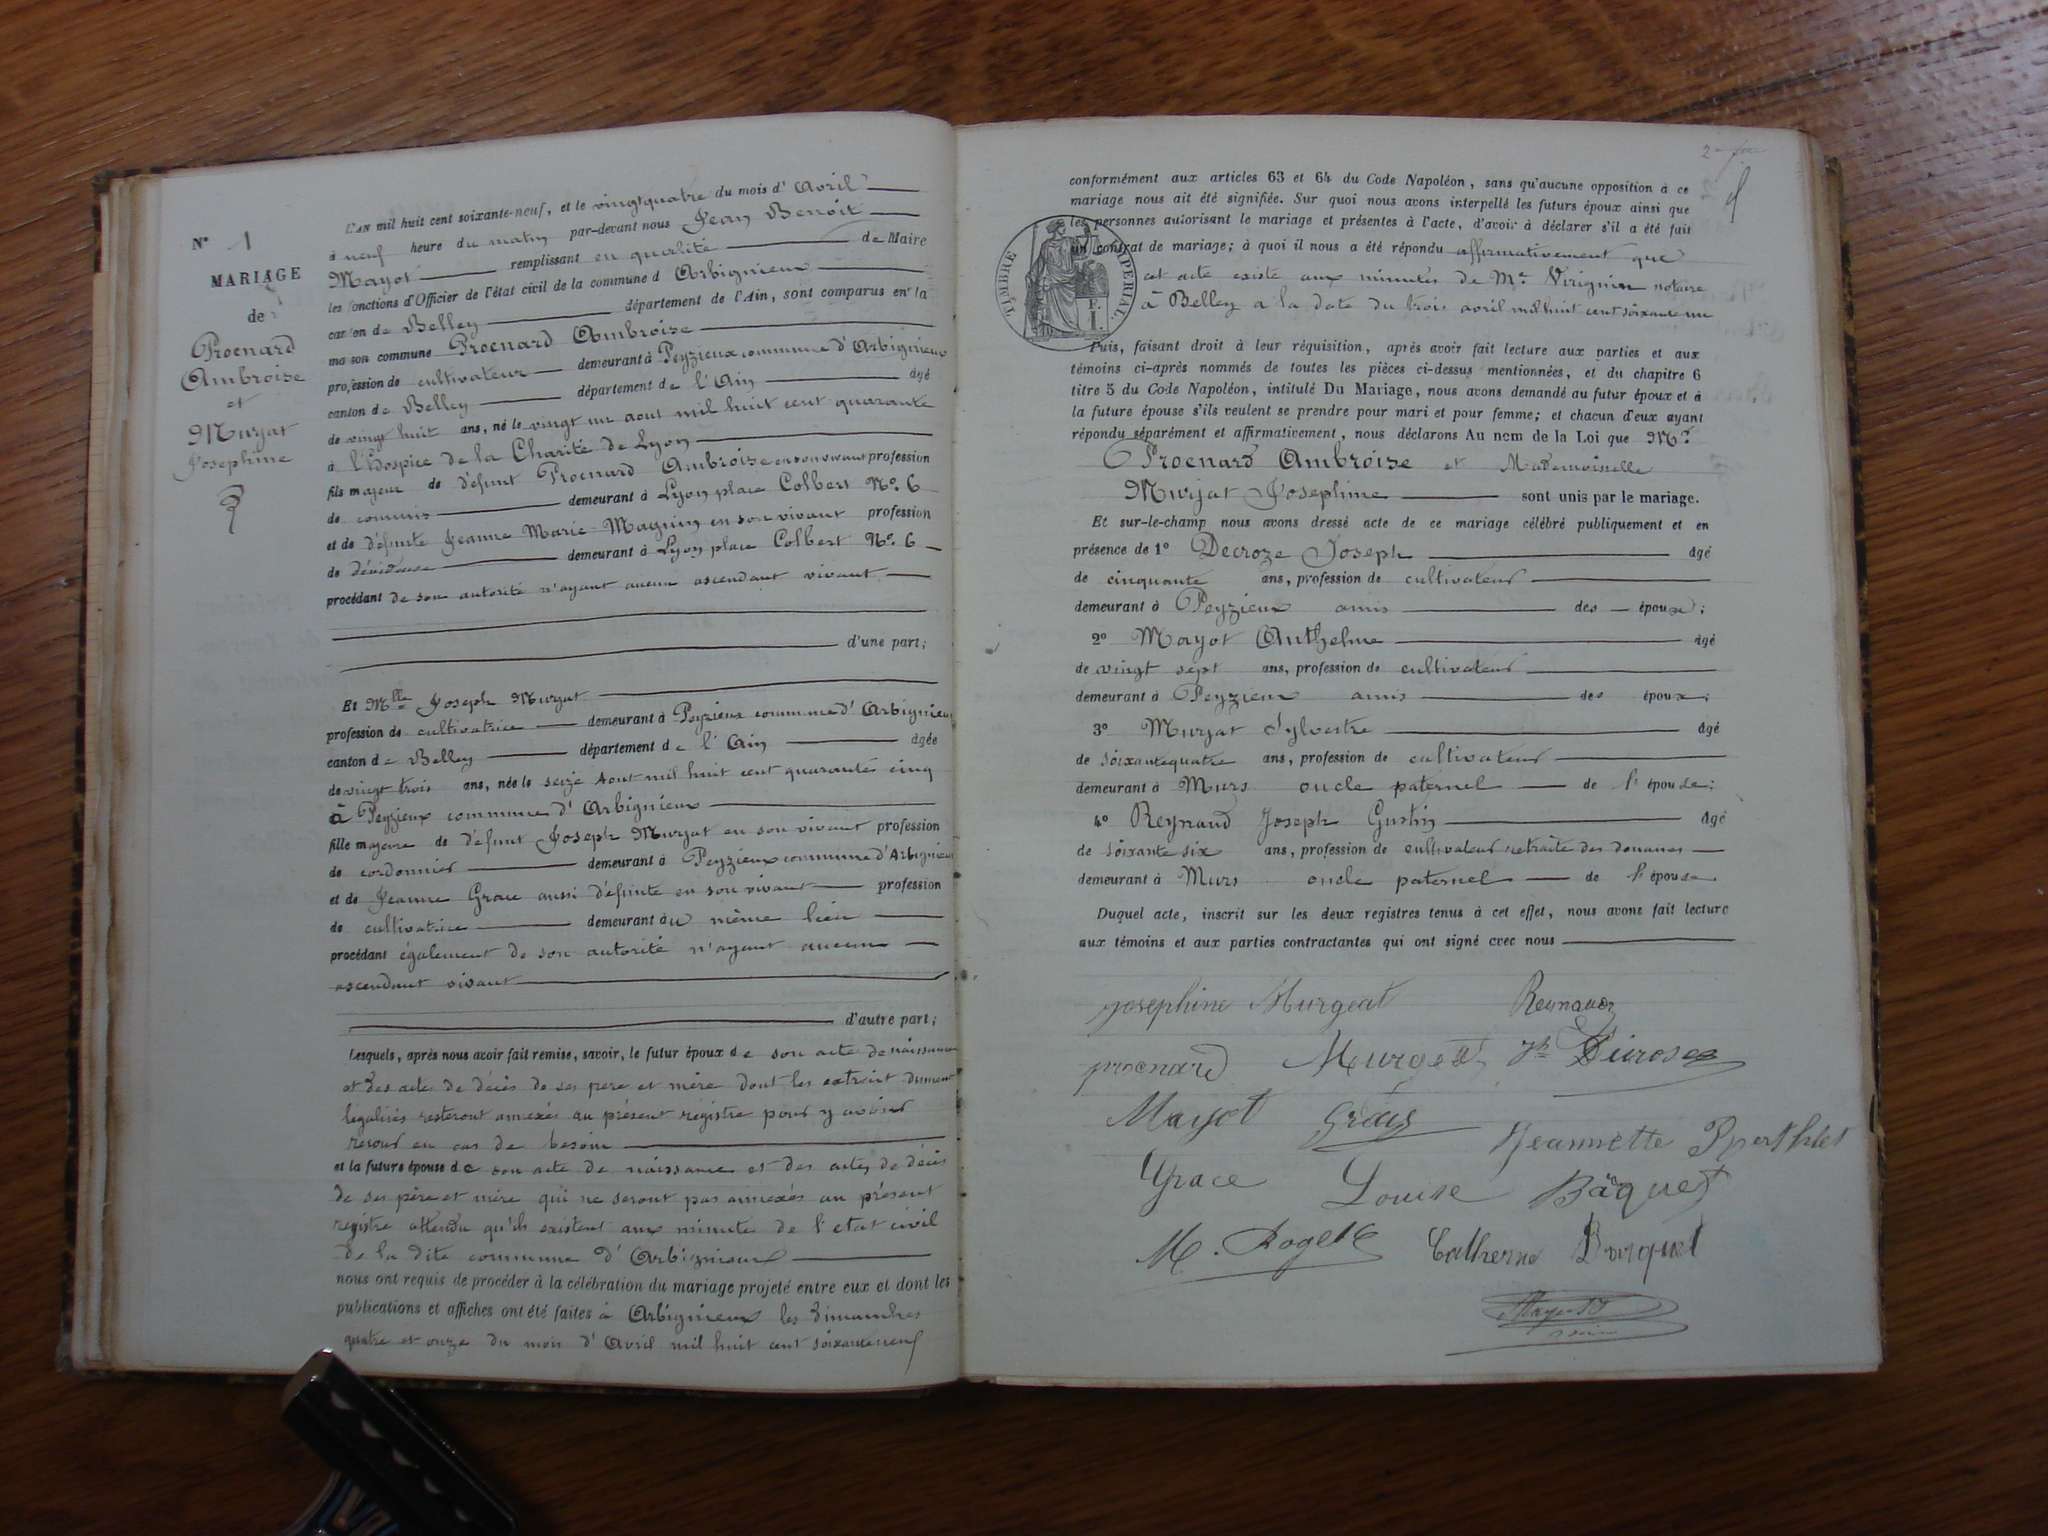 N° 1
MARIAGE
de
Proenard
Ambroise
et
Murjat
Josephine
L'AN mil huit cent soixante-neuf, et le vingtquatre du mois d' Avril
à neuf heure du matin par-devant nous Jean Benoit
Mayot remplissant en qualité de Maire
les fonctions d'Officier de l'état civil de la commune d Arbignieux
canton de Belley département de l'Ain, sont comparus en la
maison commune Proenard Ambroise
profession de cultivateur demeurant à Peyzieux commune d'Arbignieux
canton de Belley département de l'Ain âgé
de vingt huit ans, né le vingt un aout mil huit cent quarante
à l'Hospice de la Charité de Lyon
fils majeur de défunt Proenard Ambroise en son vivant profession
de commis demeurant à Lyon place Colbert N°. 6
et de défunte Jeanne Marie Magnin en son vivant profession
de dévideuse demeurant à Lyon place Colbert N°. 6
procédant de son autorité n'ayant aucun ascendant vivant
d'une part;
Et Mlle Joseph Murjat
profession de cultivatrice demeurant à Peyzieux commune d'Arbignieux
canton de Belley département de l'Ain âgée
de vingt trois ans, née le seize Aout mil huit cent quarante cinq
à Peyzieux commune d'Arbignieux
fille majeure de défunt Joseph Murjat en son vivant profession
de cordonnier demeurant à Peyzieux commune d'Arbignieux
et de Jeanne Grace aussi défunte en son vivant profession
de cultivatrice demeurant au même lieu
procédant également de son autorité n'ayant aucun
ascendant vivant
d'autre part;
Lesquels, après nous avoir fait remise, savoir, le futur époux de son acte de naissance
et des actes de décès de ses pere et mère dont les extrait dument
légalisés resteront annexés au présent régistre pour y avoir
recours en cas de besoin
et la future épouse de son acte de naissance et des actes de décès
de ses père et mère qui ne seront pas annexés au présent
registre attendu qu'ils existent aux minute de l'etat civil
de la dite commune d'Arbignieux
nous ont requis de procéder à la célébration du mariage projeté entre eux et dont les
publications et affiches ont été faites à Arbignieux les dimanches
quatre et onze du mois d'Avril mil huit cent soixante neuf
conformément aux articles 63 et 64 du Code Napoléon, sans qu'aucune opposition à ce
mariage nous ait été signifiée. Sur quoi nous avons interpellé les futurs époux ainsi que
les personnes autorisant le mariage et présentes à l'acte, d'avoir à déclarer s'il a été fait
un contrat de mariage; à quoi il nous a été répondu affirmativement que
cet acte existe aux minutes de Me. Virignin notaire
à Belley a la date du trois avril mil huit cent soixante
TIMBRE IMPERIAL
F.
1.
Puis, faisant droit à leur réquisition, après avoir fait lecture aux parties et aux
témoins ci-après nommés de toutes les pièces ci-dessus mentionnées, et du chapitre 6
titre 5 du Code Napoléon, intitulé Du Mariage, nous avons demandé au futur époux et à
la future épouse s'ils veulent se prendre pour mari et pour femme; et chacun d'eux ayant
répondu séparément et affirmativement, nous déclarons Au nom de la Loi que Mr.
Proenard Ambroise et Mademoiselle
Murjat Josephine sont unis par le mariage.
Et sur-le-champ nous avons dressé acte de ce mariage célébré publiquement et en
présence de 1° Decroze Joseph âgé
de cinquante ans, profession de cultivateur
demeurant à Peyzieux amis des époux;
2° Mayot Anthelme âgé
de vingt sept ans, profession de cultivateur
demeurant à Peyzieux amis des époux;
3° Murjat Sylvestre âgé
de soixantequatre ans, profession de cultivateur
demeurant à Murs oncle paternel de l'épouse;
4° Reynaud Joseph Gustin âgé
de soixante six ans, profession de cultivateur retraité des douanes
demeurant à Murs oncle paternel de l'épouse
Duquel acte, inscrit sur les deux registres tenus à cet effet, nous avons fait lecture
aux témoins et aux parties contractantes qui ont signé avec nous
josephine Murgeat Reynaud
proenard Murgeat Jh Ducrose
Mayot Jeannette Bperthlet
Grace Louise Bâquet
M. Rogete Catherne Borquet